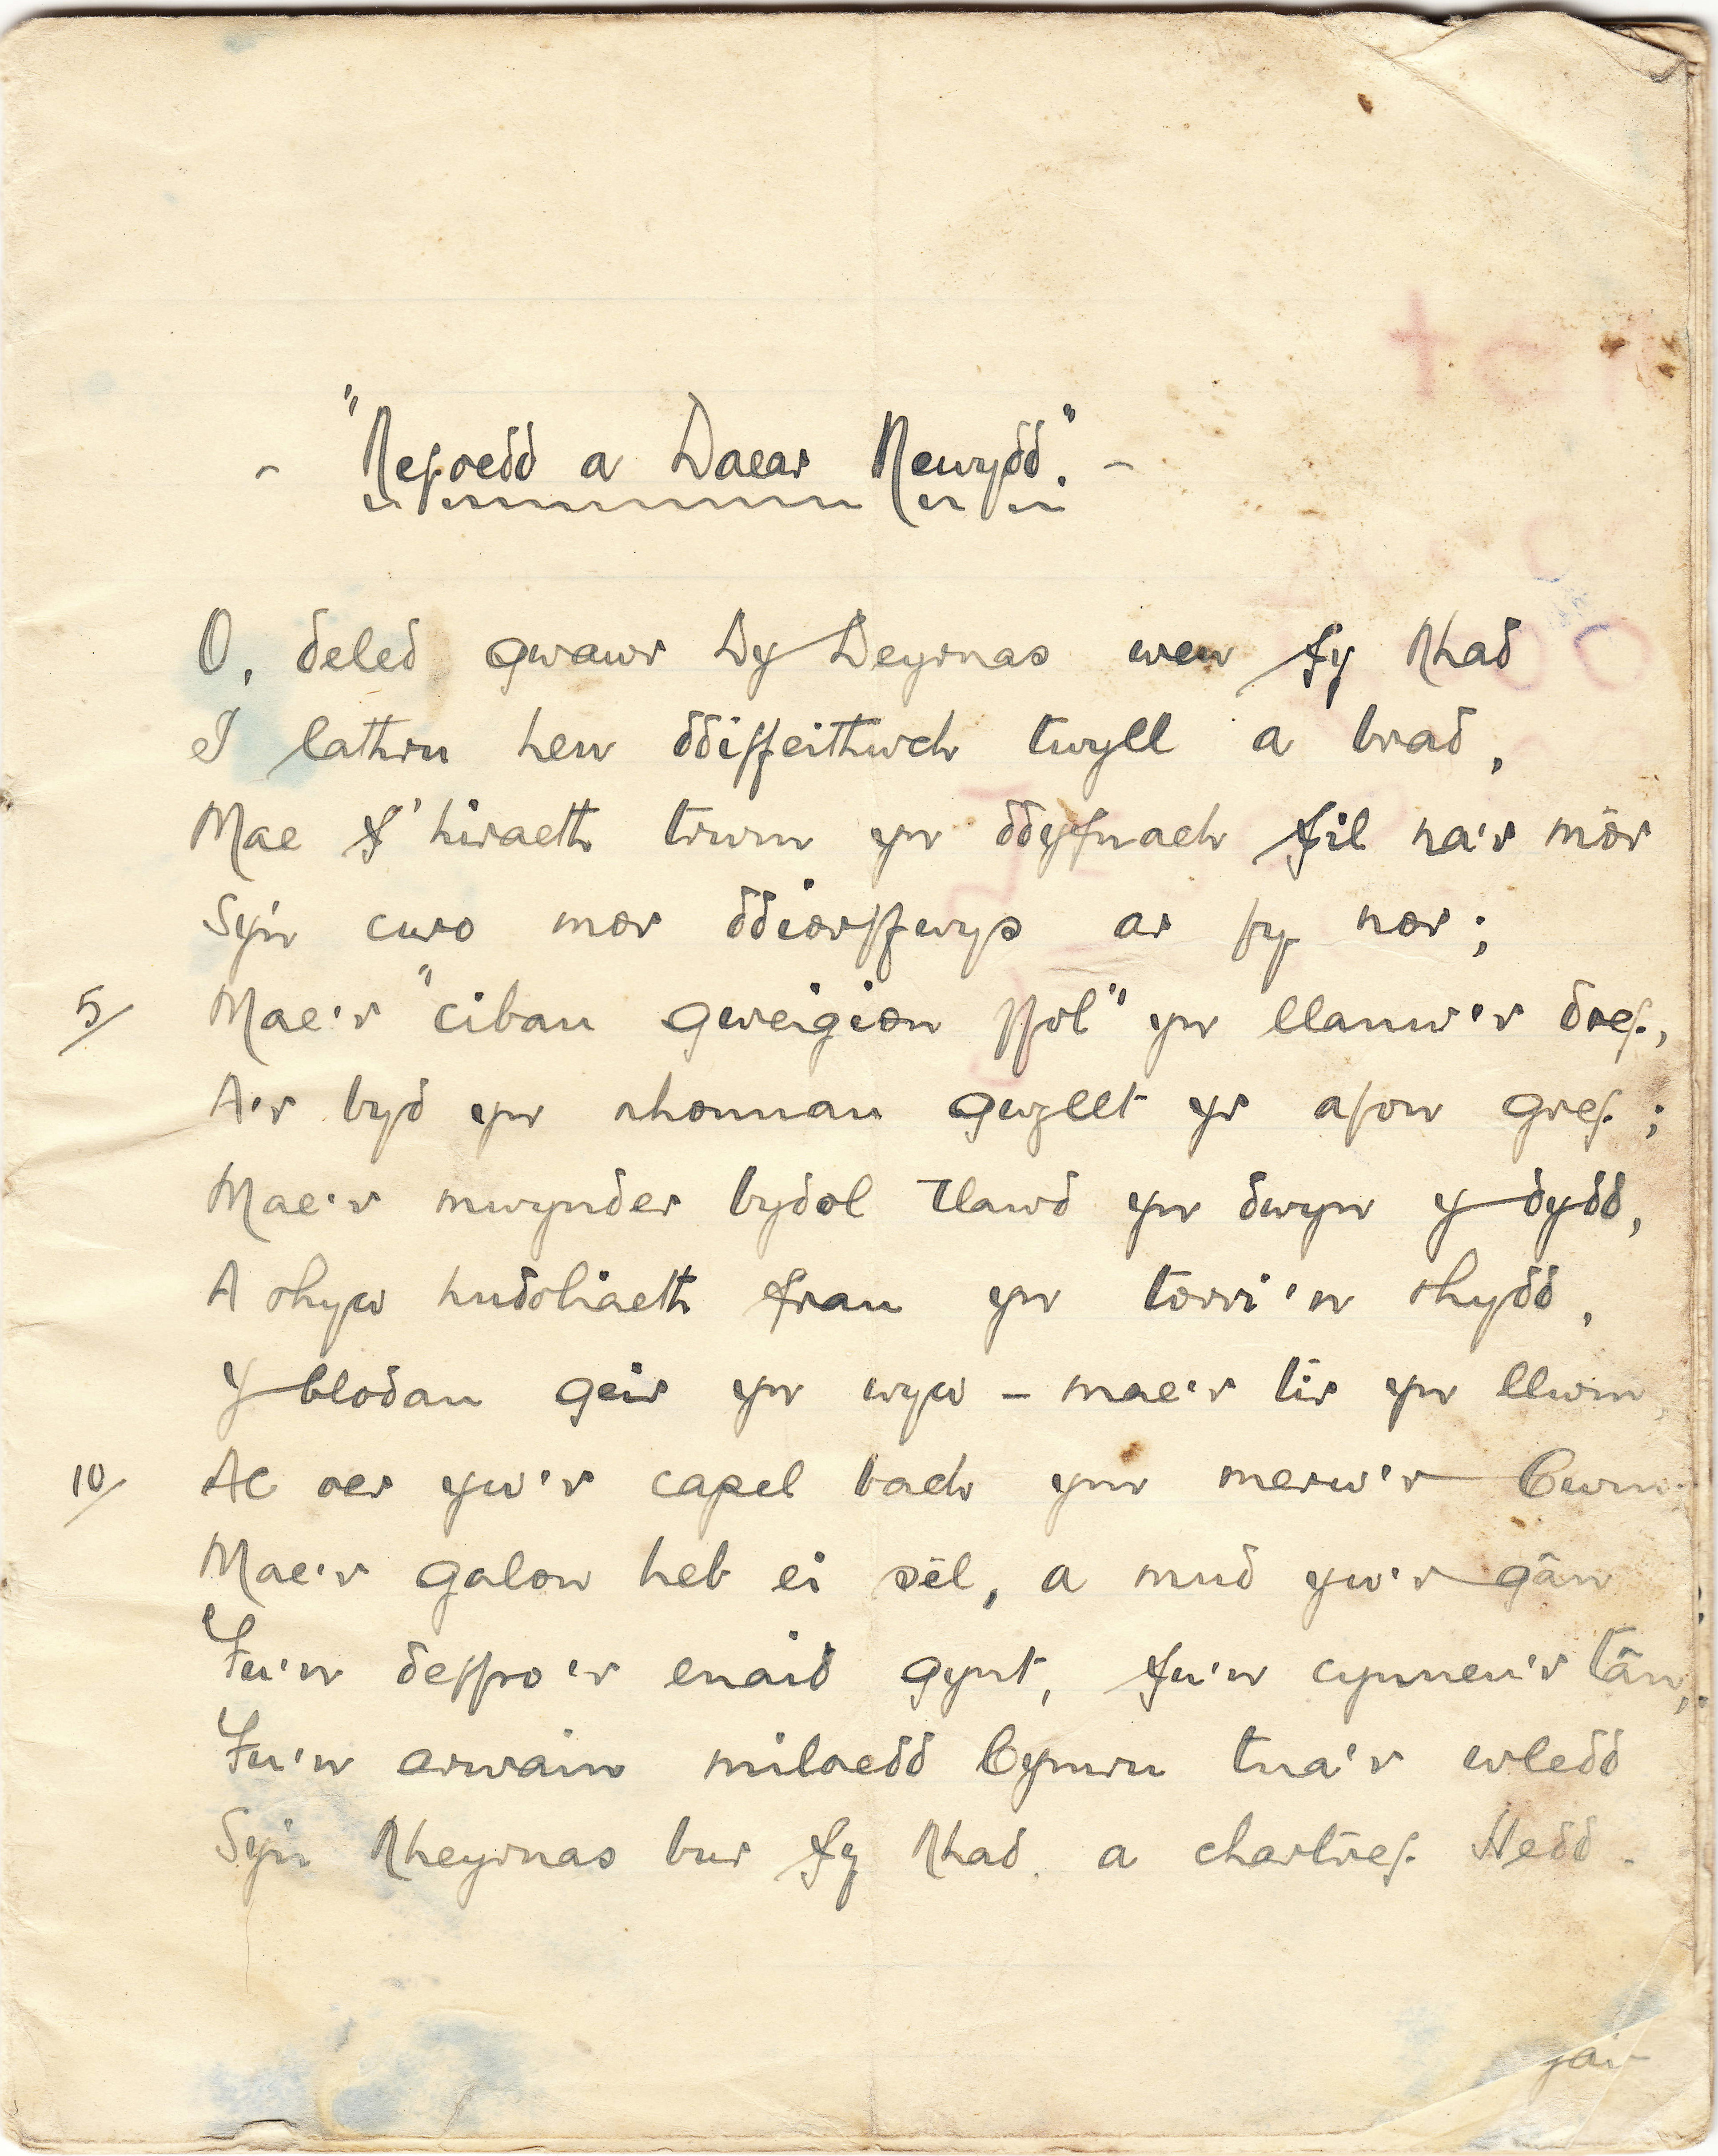 - "Nefoedd a Daear Newydd." -
O, deled gwawr Dy Deyrnas wen fy Nhad
I lathru hen ddiffeithwch twyll a brad,
Mae f'hiraeth trwm yn ddyfnach fil na'r môr
Sy'n curo mor ddiorffwys ar fy nor;
5/ Mae'r "cibau gweigion ffôl" yn llanw'r dref,
A'r byd yn rhonnau gwyllt yr afon gref;
Mae'r mwynder bydol tlawd yn dwyn y dydd,
A rhyw hudoliaeth frau yn torri'n rhydd,
Y blodau geir yn wyw - mae'r tir yn llwm,
10/ Ac oer yw'r capel bach ym merw'r Cwm:
Mae'r galon heb ei sêl, a mud yw'r gân
Fu'n deffro'r enaid gynt, fu'n cynneu'r tân,
Fu'n arwain miloedd Cymru tua'r wledd
Sy'n Nheyrnas bur fy Nhad, a chartref Hedd.